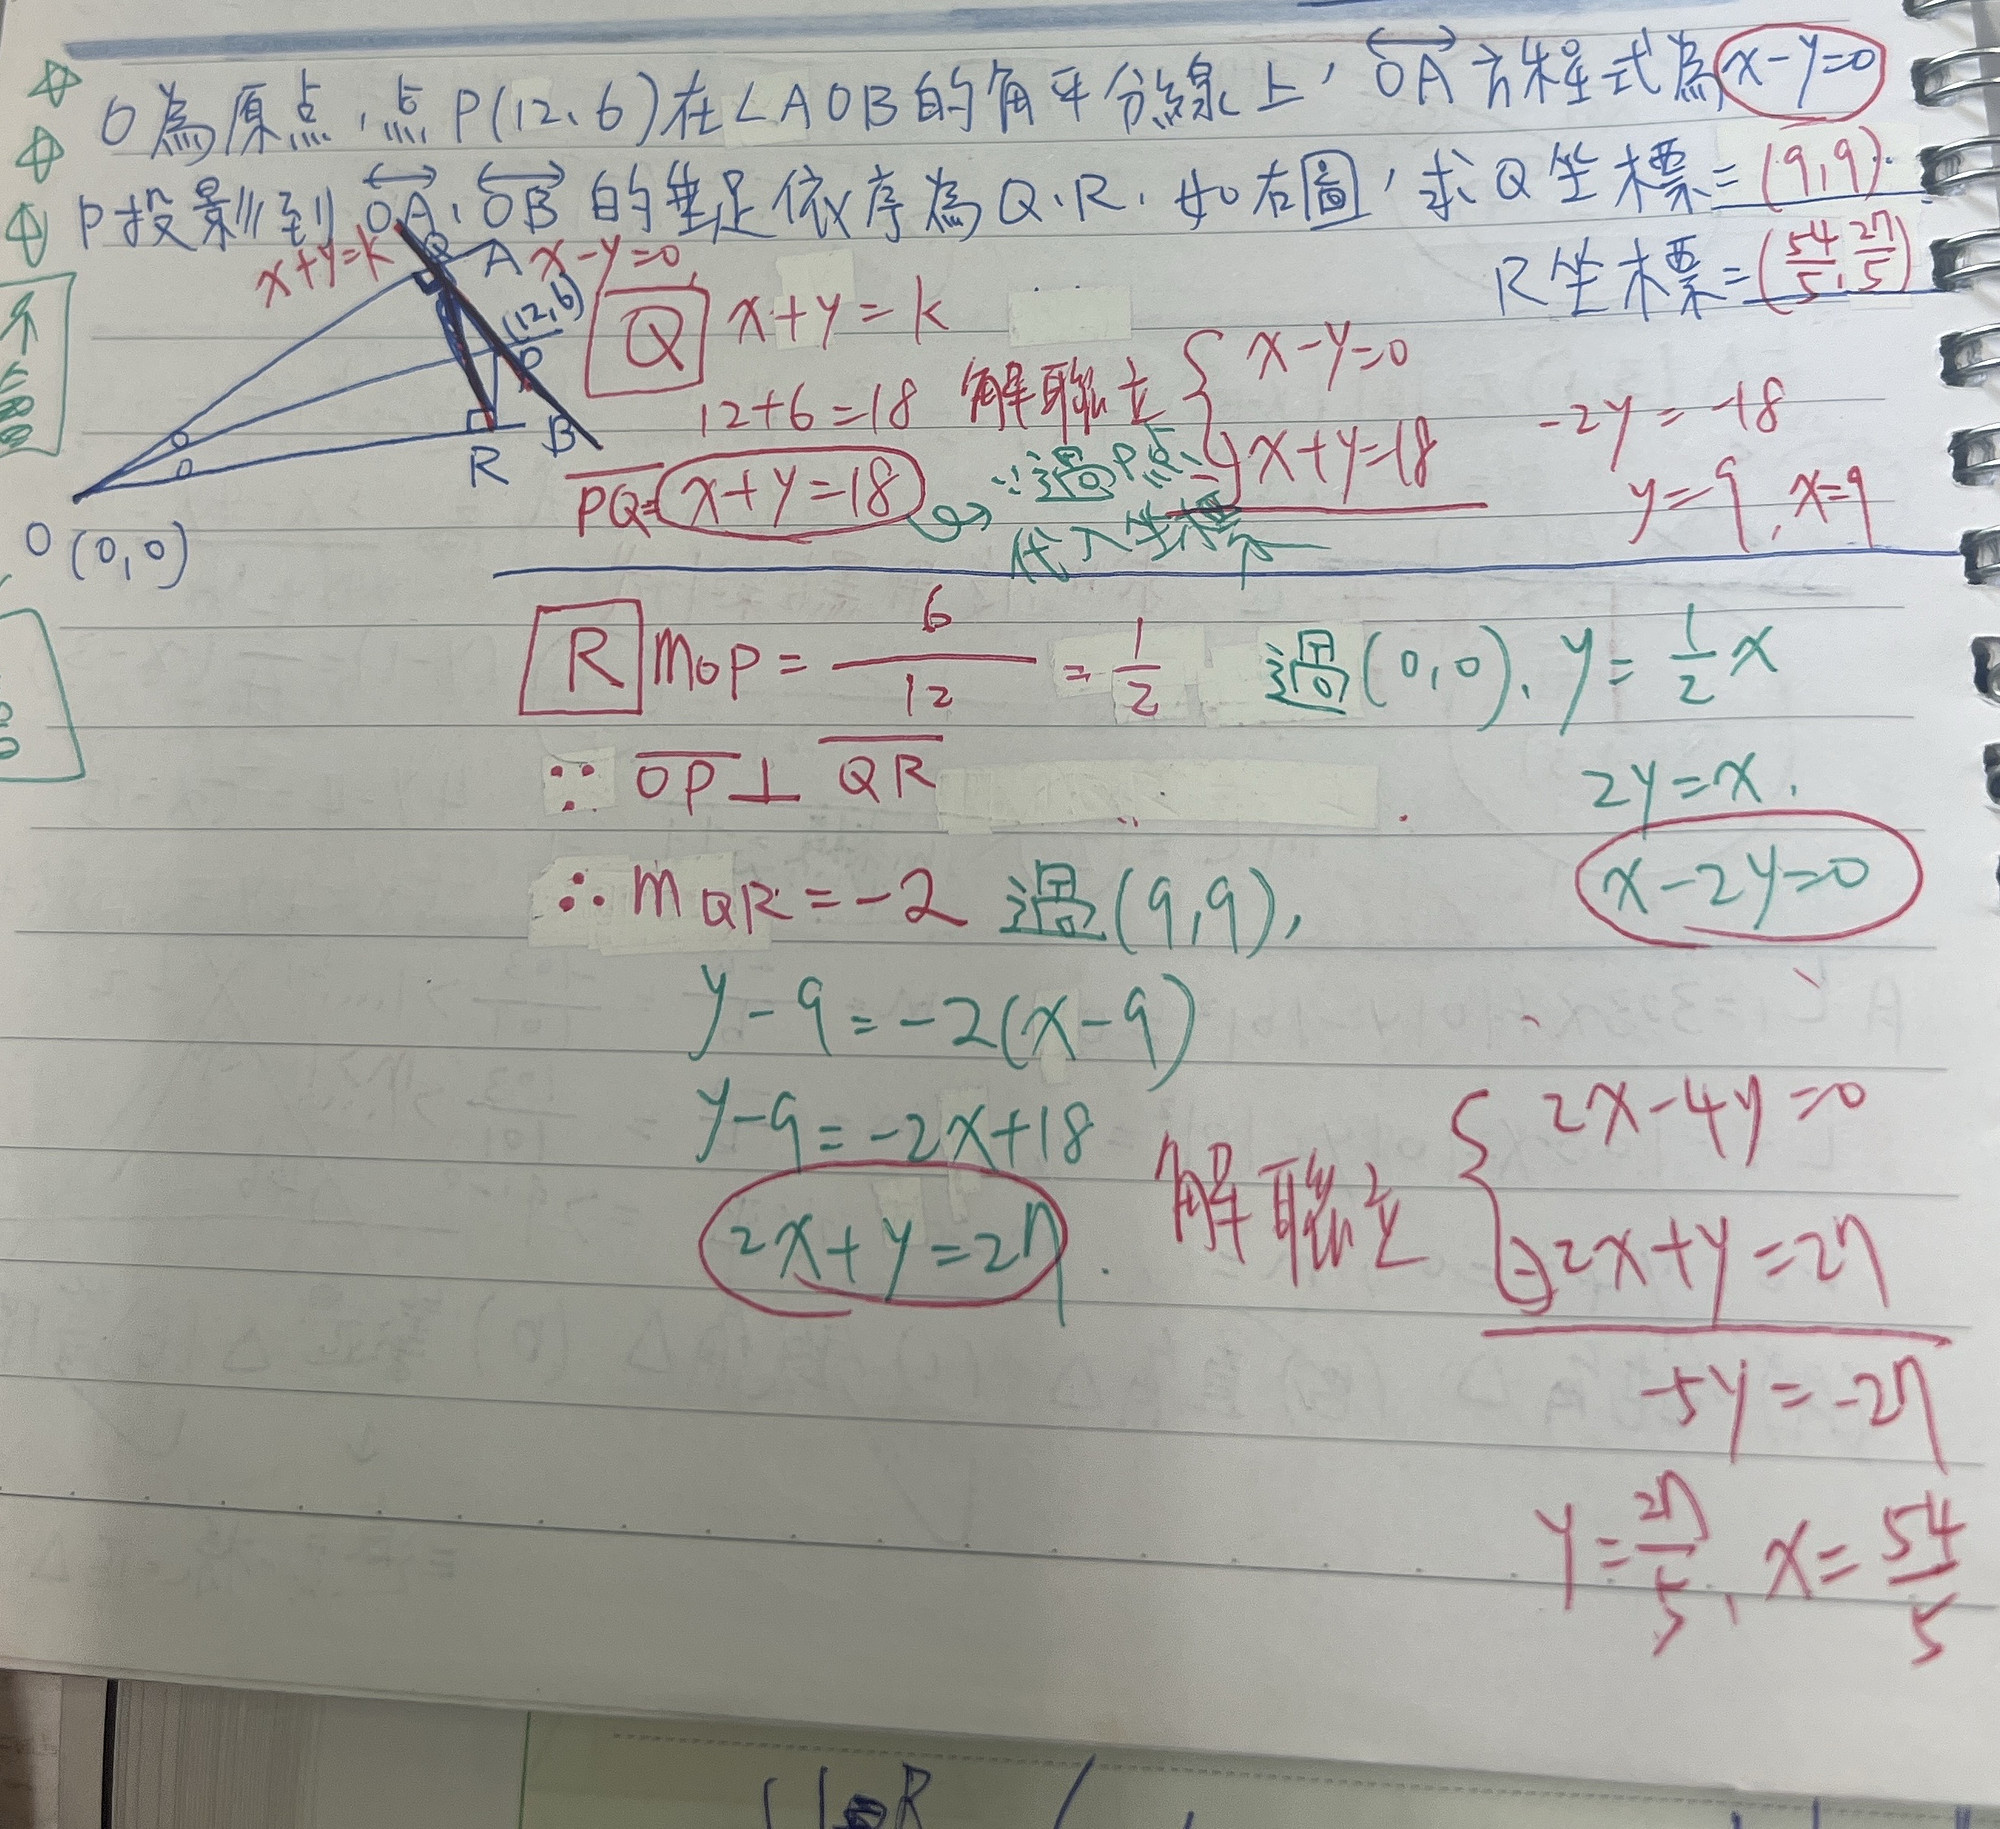 O為原点,点P(12、6)在∠AOB的角平分線上,OA方程式為x-y=0
P投影到OA、OB的垂足依序為Q、R,如右圖,求Q坐標=(9,9).
R坐標=(54/5, 27/5)
x+y=k
Q
A
x-y=0
(12,6)
P
R
B
O (0,0)
Q x+y=k
12+6=18
PQ=x+y=18
∵過P点
代入坐標
解聯立 { x-y=0
-) x+y=18
-2y=-18
y=9, x=9
R mOP = 6/12 = 1/2 過(0,0), y=1/2x
2y=x.
x-2y=0
∵ OP⊥QR
∴ mQR=-2 過(9,9),
y-9=-2(x-9)
y-9=-2x+18
2x+y=27.
解聯立 { 2x-4y=0
-) 2x+y=27
-5y=-27
y=27/5, x=54/5
R